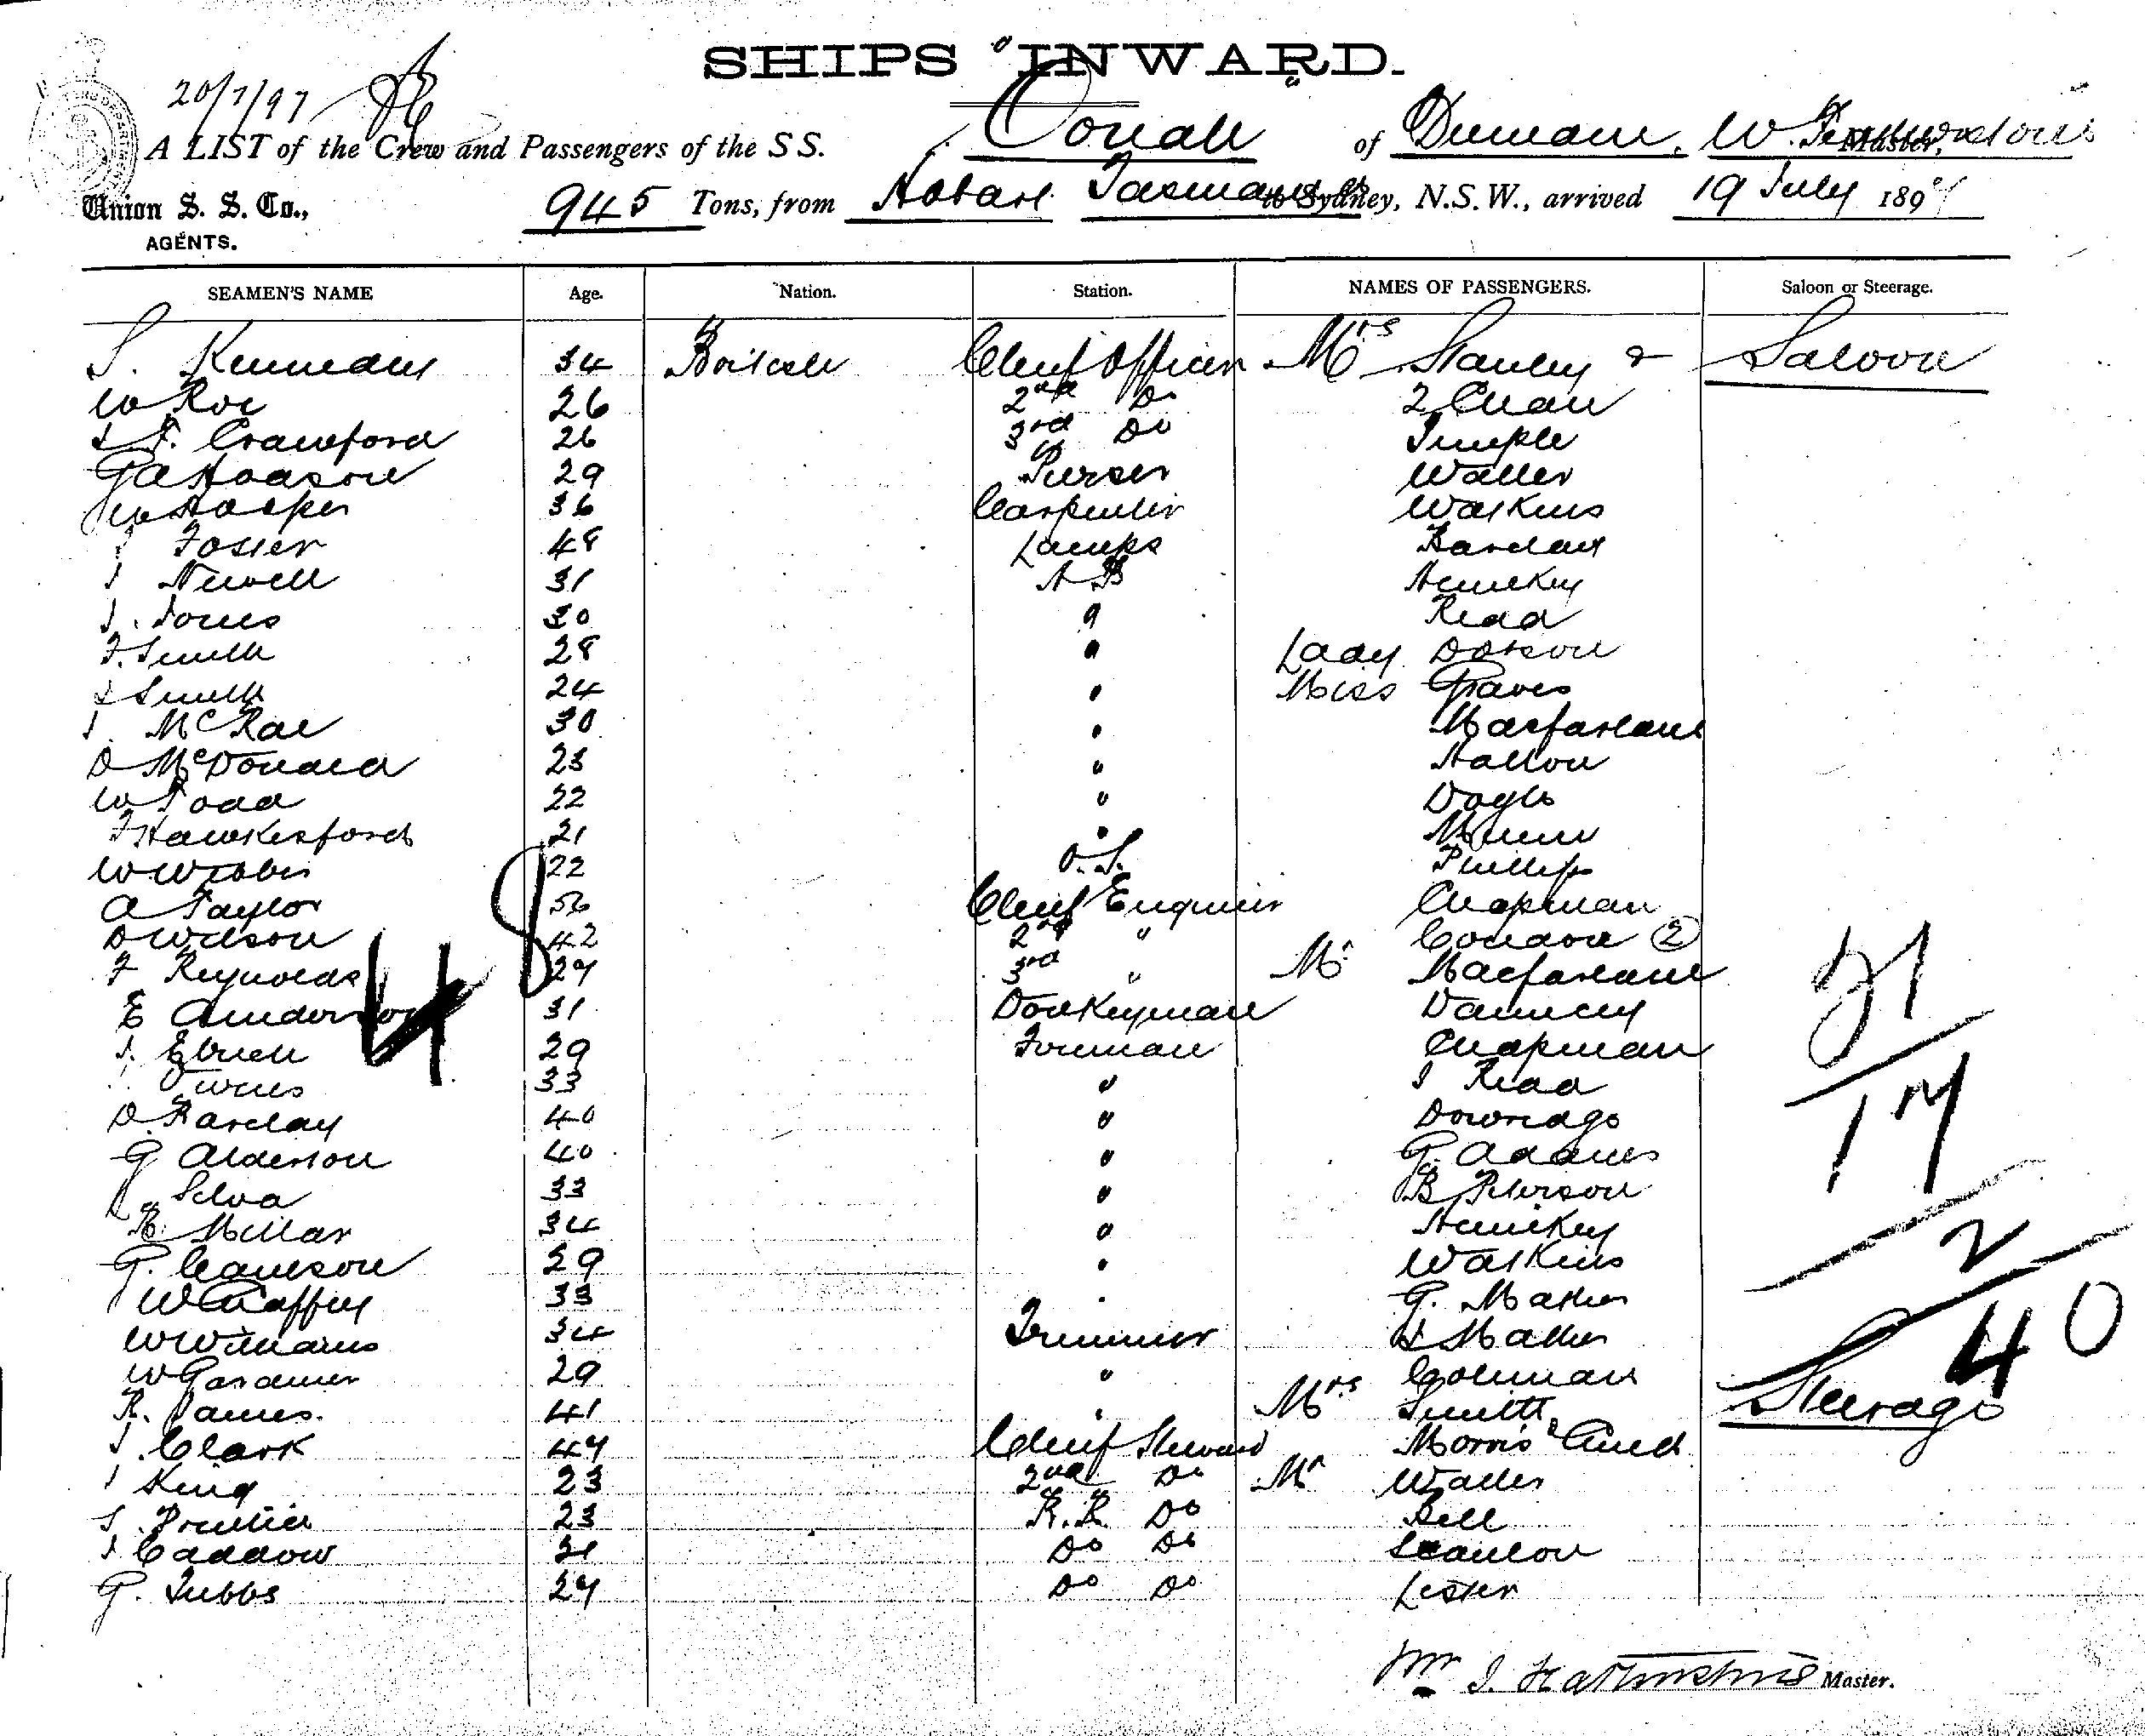 SHIPS INWARD.
20/7/97
A LIST of the Crew and Passengers of the S S. Oonah of Dunedin, W. Master,
Union S. S. Co., 945 Tons, from Hobart Tasmania to Sydney, N.S.W., arrived 19 July 1897
AGENTS.
SEAMEN'S NAME Age. Nation. Station. NAMES OF PASSENGERS. Saloon or Steerage.
S. Kennedy 34 British Chief Officer Mrs Stanley & Saloon
W Roe 26 2nd Do 2 Chan
F. Crawford 26 3rd Do Temple
G A Hodson 29 Purser Waller
Hooper 36 Carpenter Watkins
Foster 48 Lamps Barclay
J Newell 31 A B Hemskey
J. Jones 30 " Read
F. Smith 28 " Lady Dobson
Smith 24 " Miss Graves
J McRae 30 " Macfarlane
D McDonald 23 " Hallow
W Todd 22 " Doyle
F Hawkesford 21 " Munn
W Webber 22 O.S. Phillips
A Taylor 56 Chief Engineer Chapman
D Wilson 42 2nd " Condon 2
F Reynolds 27 3rd " Mr Macfarlane
E Anderson 31 Donkeyman
J. 29 Fireman Chapman
Owens 33 " J Read
D. Barclay 40 " Downago
G Alderson 40 " G. Adams
Silva 33 " B Peterson
R. Millar 34 " Hemskey
G. 29 " Watkins
W Gaffey 33 " G. Mather
W Williams 34 Trimmer Mather
W Gardiner 29 " Coleman
R. James. 41 " Mrs Smith Steerage
J. Clark 47 Chief Steward Morris & Child
J King 23 2nd Do Mr Waller
S. 23 F.R. Do Bell
J Caddow 21 Do Do Scanlon
G. Tubbs 27 Do Do Lester
48
21
17
2
40
Wm J. Master.